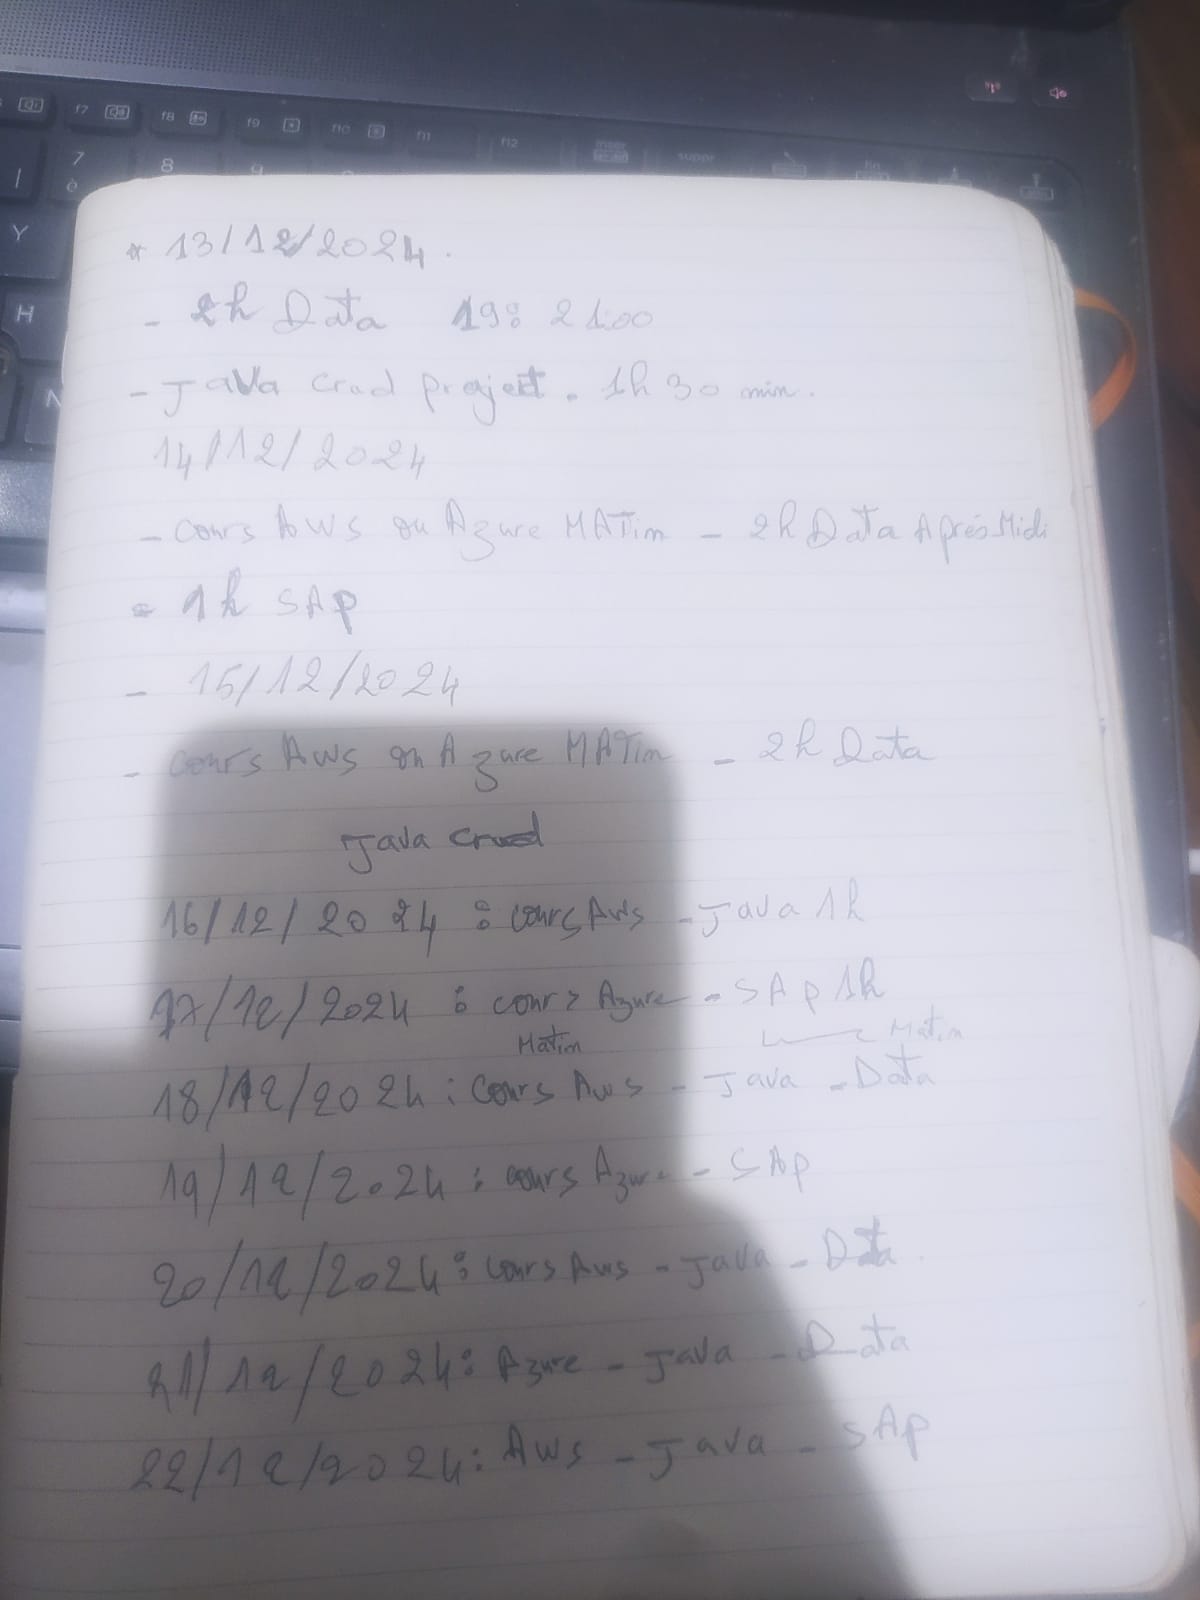 f7 f8 f9 f10 f11 f12 inser suppr fin
7 8 9
è
Y
H
N
* 13/12/2024.
- 2h Data 19: 21:00
- Java Crud project. 1h 30 min.
14/12/2024
- Cours AWS ou Azure MATin - 2h Data Après Midi
- 1h SAP
- 15/12/2024
- Cours AWS ou Azure MATin - 2h Data
Java Crud
16/12/2024 : Cours Aws - Java 1h
17/12/2024 : cours Azure - SAP 1h
Matin Matin
18/12/2024 : Cours Aws - Java - Data
19/12/2024 : cours Azure - SAp
20/12/2024 : Cours Aws - Java - Data
21/12/2024 : Azure - Java - Data
22/12/2024 : Aws - Java - SAp